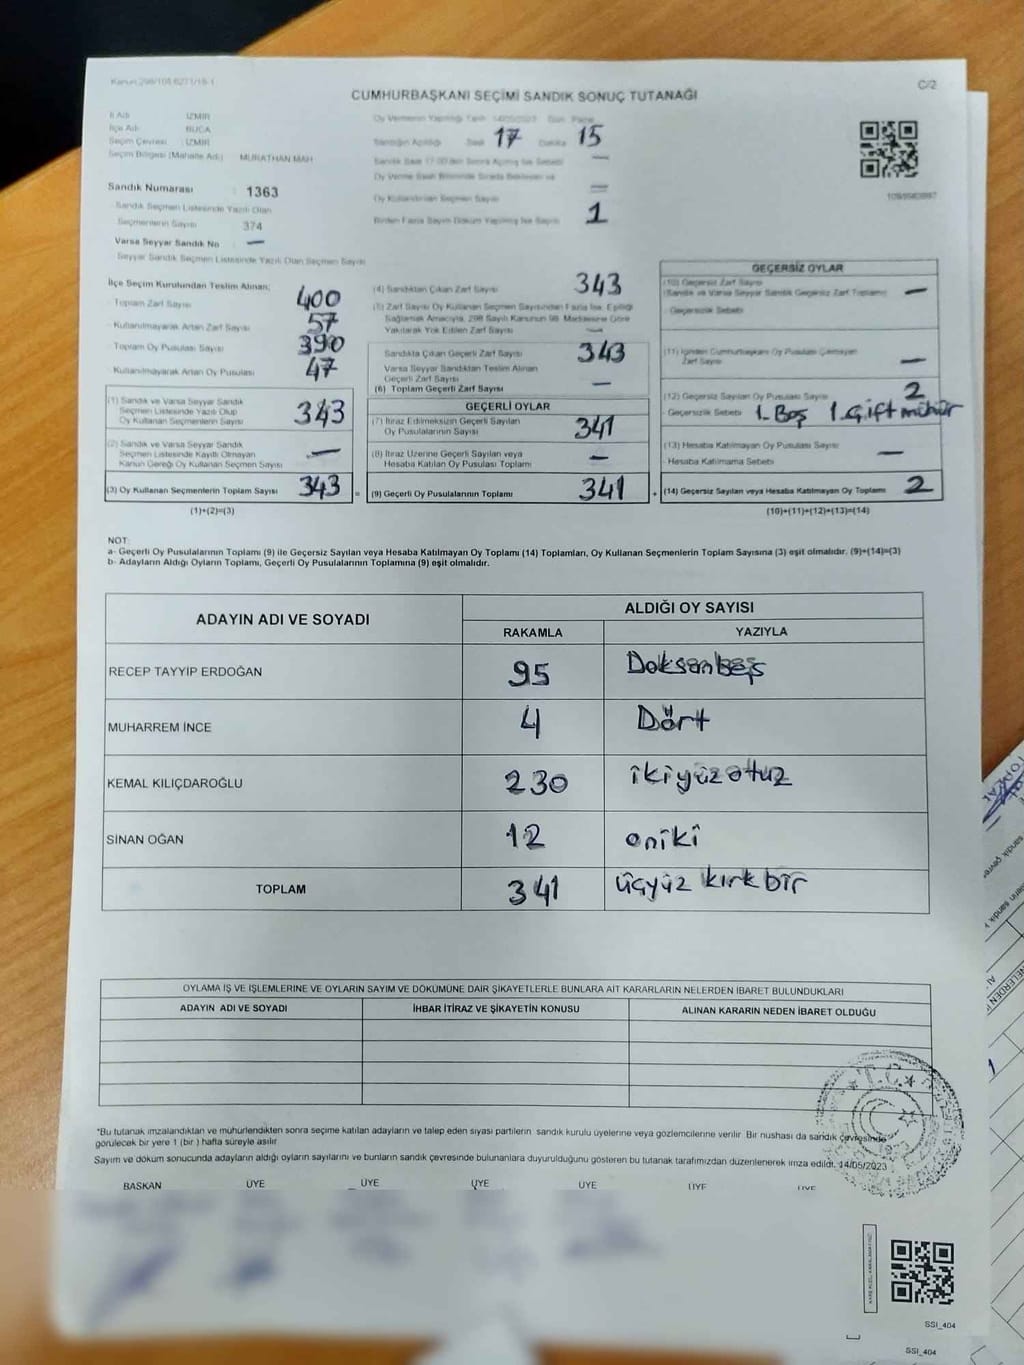 Kanun:298/105,6271/15-1
C/2
CUMHURBAŞKANI SEÇİMİ SANDIK SONUÇ TUTANAĞI
İl Adı İZMİR
İlçe Adı BUCA
Seçim Çevresi : İZMİR
Seçim Bölgesi (Mahalle Adı) MURATHAN MAH
Sandık Numarası : 1363
Sandık Seçmen Listesinde Yazılı Olan
Seçmenlerin Sayısı 374
Varsa Seyyar Sandık No —
Seyyar Sandık Seçmen Listesinde Yazılı Olan Seçmen Sayısı
Oy Vermenin Yapıldığı Tarih 14/05/2023 Gün Pazar
Sandığın Açıldığı Saat 17 Dakika 15
Sandık Saat 17:00'den Sonra Açılmış İse Sebebi —
Oy Verme Saati Bitiminde Sırada Bekleyen ve
Oy Kullandırılan Seçmen Sayısı —
Birden Fazla Sayım Döküm Yapılmış İse Sayısı 1
İlçe Seçim Kurulundan Teslim Alınan;
Toplam Zarf Sayısı 400
Kullanılmayarak Artan Zarf Sayısı 57
Toplam Oy Pusulası Sayısı 390
Kullanılmayarak Artan Oy Pusulası 47
(1) Sandık ve Varsa Seyyar Sandık
Seçmen Listesinde Yazılı Olup
Oy Kullanan Seçmenlerin Sayısı 343
(2) Sandık ve Varsa Seyyar Sandık
Seçmen Listesinde Kayıtlı Olmayan
Kanun Gereği Oy Kullanan Seçmen Sayısı —
(3) Oy Kullanan Seçmenlerin Toplam Sayısı 343 =
(1)+(2)=(3)
(4) Sandıktan Çıkan Zarf Sayısı 343
(5) Zarf Sayısı Oy Kullanan Seçmen Sayısından Fazla İse, Eşitliği
Sağlamak Amacıyla, 298 Sayılı Kanunun 98. Maddesine Göre
Yakılarak Yok Edilen Zarf Sayısı —
Sandıkta Çıkan Geçerli Zarf Sayısı 343
Varsa Seyyar Sandıktan Teslim Alınan
Geçerli Zarf Sayısı —
(6) Toplam Geçerli Zarf Sayısı
GEÇERLİ OYLAR
(7) İtiraz Edilmeksizin Geçerli Sayılan
Oy Pusulalarının Sayısı 341
(8) İtiraz Üzerine Geçerli Sayılan veya
Hesaba Katılan Oy Pusulası Toplamı —
(9) Geçerli Oy Pusulalarının Toplamı 341 +
GEÇERSİZ OYLAR
(10) Geçersiz Zarf Sayısı
(Sandık ve Varsa Seyyar Sandık Geçersiz Zarf Toplamı) —
- Geçersizlik Sebebi
(11) İçinden Cumhurbaşkanı Oy Pusulası Çıkmayan
Zarf Sayısı —
(12) Geçersiz Sayılan Oy Pusulası Sayısı 2
- Geçersizlik Sebebi 1. Boş 1. Çift mühür
(13) Hesaba Katılmayan Oy Pusulası Sayısı —
- Hesaba Katılmama Sebebi
(14) Geçersiz Sayılan veya Hesaba Katılmayan Oy Toplamı 2
(10)+(11)+(12)+(13)=(14)
NOT:
a- Geçerli Oy Pusulalarının Toplamı (9) ile Geçersiz Sayılan veya Hesaba Katılmayan Oy Toplamı (14) Toplamları, Oy Kullanan Seçmenlerin Toplam Sayısına (3) eşit olmalıdır. (9)+(14)=(3)
b- Adayların Aldığı Oyların Toplamı, Geçerli Oy Pusulalarının Toplamına (9) eşit olmalıdır.
ADAYIN ADI VE SOYADI ALDIĞI OY SAYISI
RAKAMLA YAZIYLA
RECEP TAYYİP ERDOĞAN 95 Doksanbeş
MUHARREM İNCE 4 Dört
KEMAL KILIÇDAROĞLU 230 ikiyüzotuz
SİNAN OĞAN 12 oniki
TOPLAM 341 üçyüz kırkbir
OYLAMA İŞ VE İŞLEMLERİNE VE OYLARIN SAYIM VE DÖKÜMÜNE DAİR ŞİKAYETLERLE BUNLARA AİT KARARLARIN NELERDEN İBARET BULUNDUKLARI
ADAYIN ADI VE SOYADI İHBAR İTİRAZ VE ŞİKAYETİN KONUSU ALINAN KARARIN NEDEN İBARET OLDUĞU
T.C.
*Bu tutanak imzalandıktan ve mühürlendikten sonra seçime katılan adayların ve talep eden siyasi partilerin sandık kurulu üyelerine veya gözlemcilerine verilir. Bir nüshası da sandık çevresinde
görülecek bir yere 1 (bir ) hafta süreyle asılır.
Sayım ve döküm sonucunda adayların aldığı oyların sayılarını ve bunların sandık çevresinde bulunanlara duyurulduğunu gösteren bu tutanak tarafımızdan düzenlenerek imza edildi. 14/05/2023
BAŞKAN ÜYE ÜYE ÜYE ÜYE ÜYE ÜYE
SSI_404
SSI_404